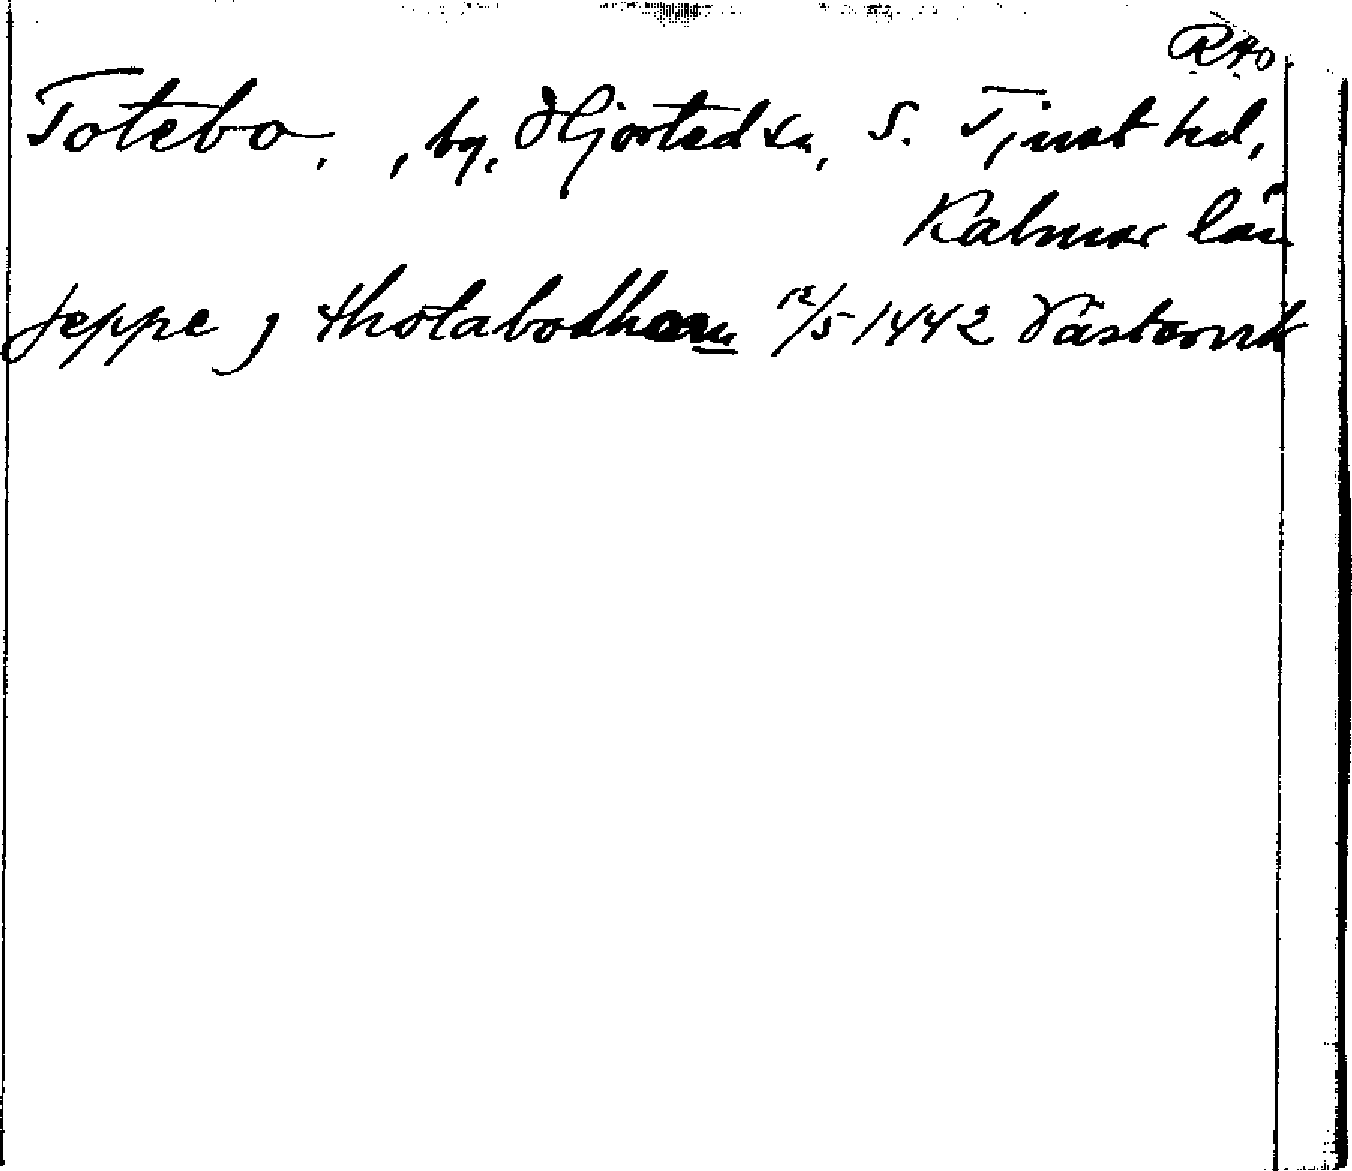 RAO
Totebo, , by, Hjorted sn, S. Tjust hd,
Kalmar län
Jeppe j thotabodhom 12/5 1442 Västervik